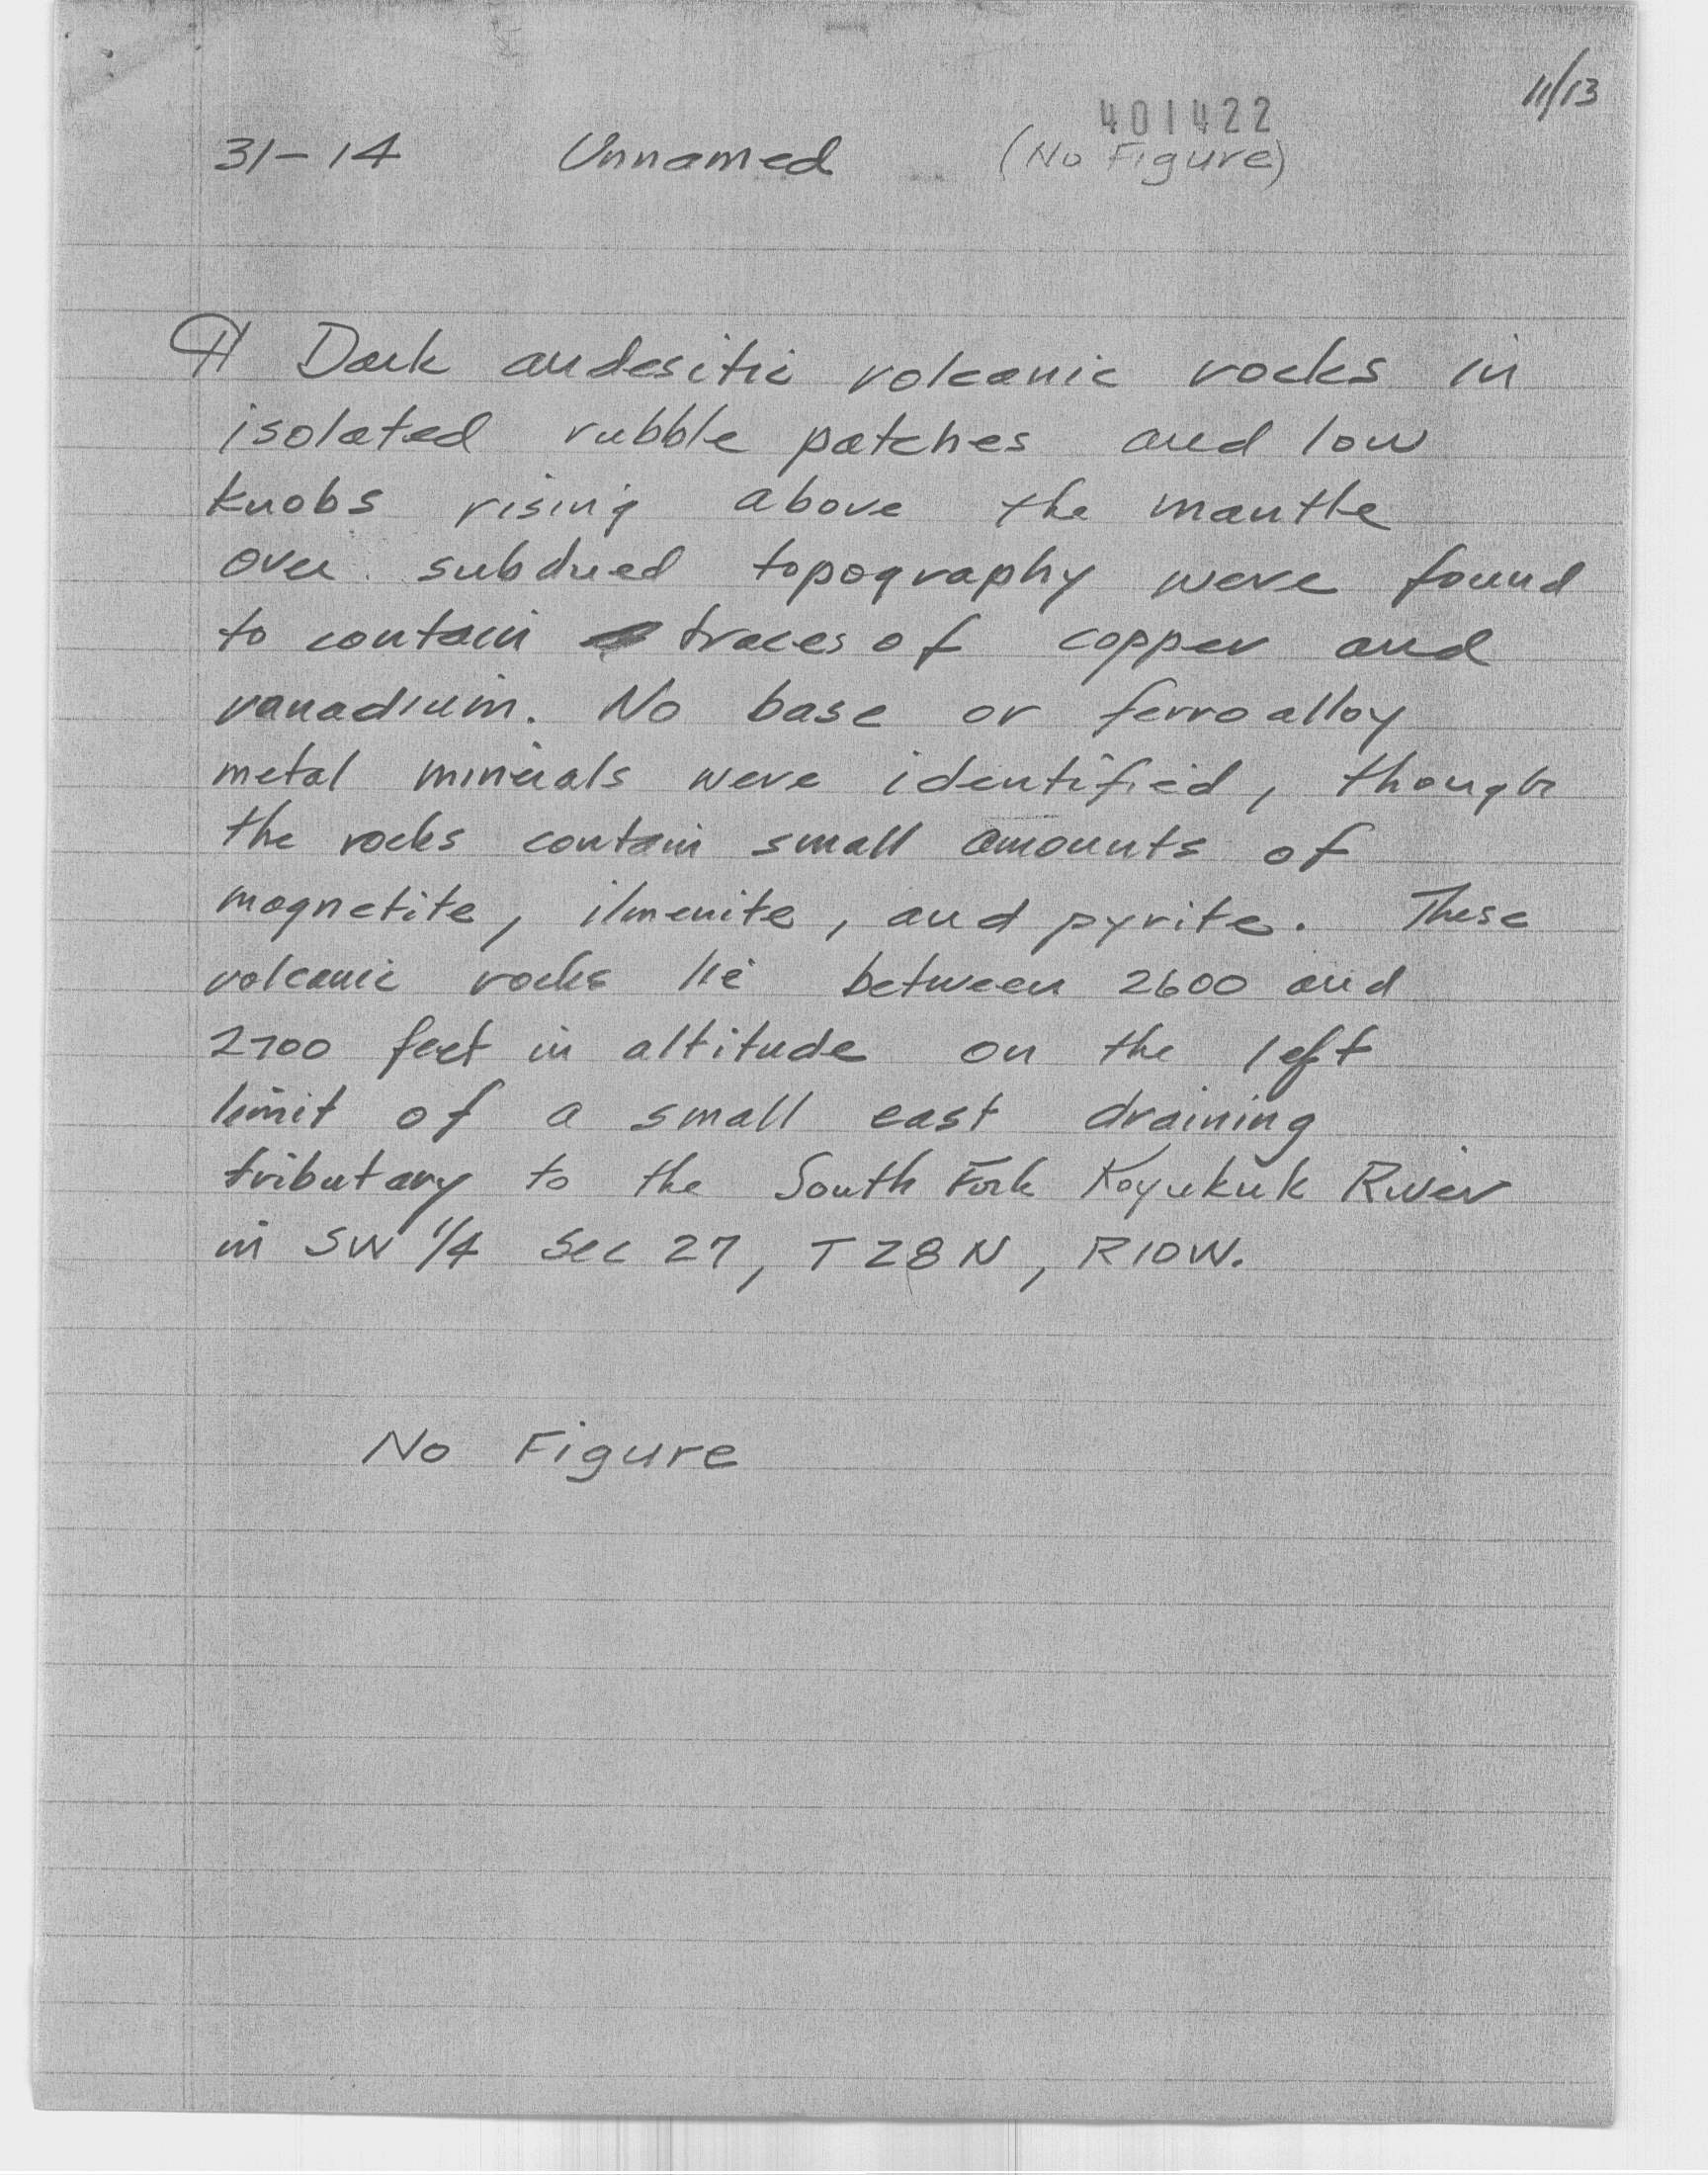 11/13
401422
31-14 Unnamed (No Figure)
¶ Dark andesitic volcanic rocks in
isolated rubble patches and low
knobs rising above the mantle
over subdued topography were found
to contain traces of copper and
vanadium. No base or ferroalloy
metal minerals were identified, though
the rocks contain small amounts of
magnetite, ilmenite, and pyrite. These
volcanic rocks lie between 2600 and
2700 feet in altitude on the left
limit of a small east draining
tributary to the South Fork Koyukuk River
in SW 1/4 Sec 27, T28N, R10W.
No Figure